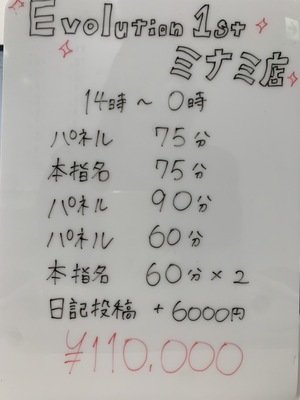 Evolution 1st
ミナミ店
14時 〜 0時
パネル 75分
本指名 75分
パネル 90分
パネル 60分
本指名 60分×2
日記投稿 +6000円
¥110.000